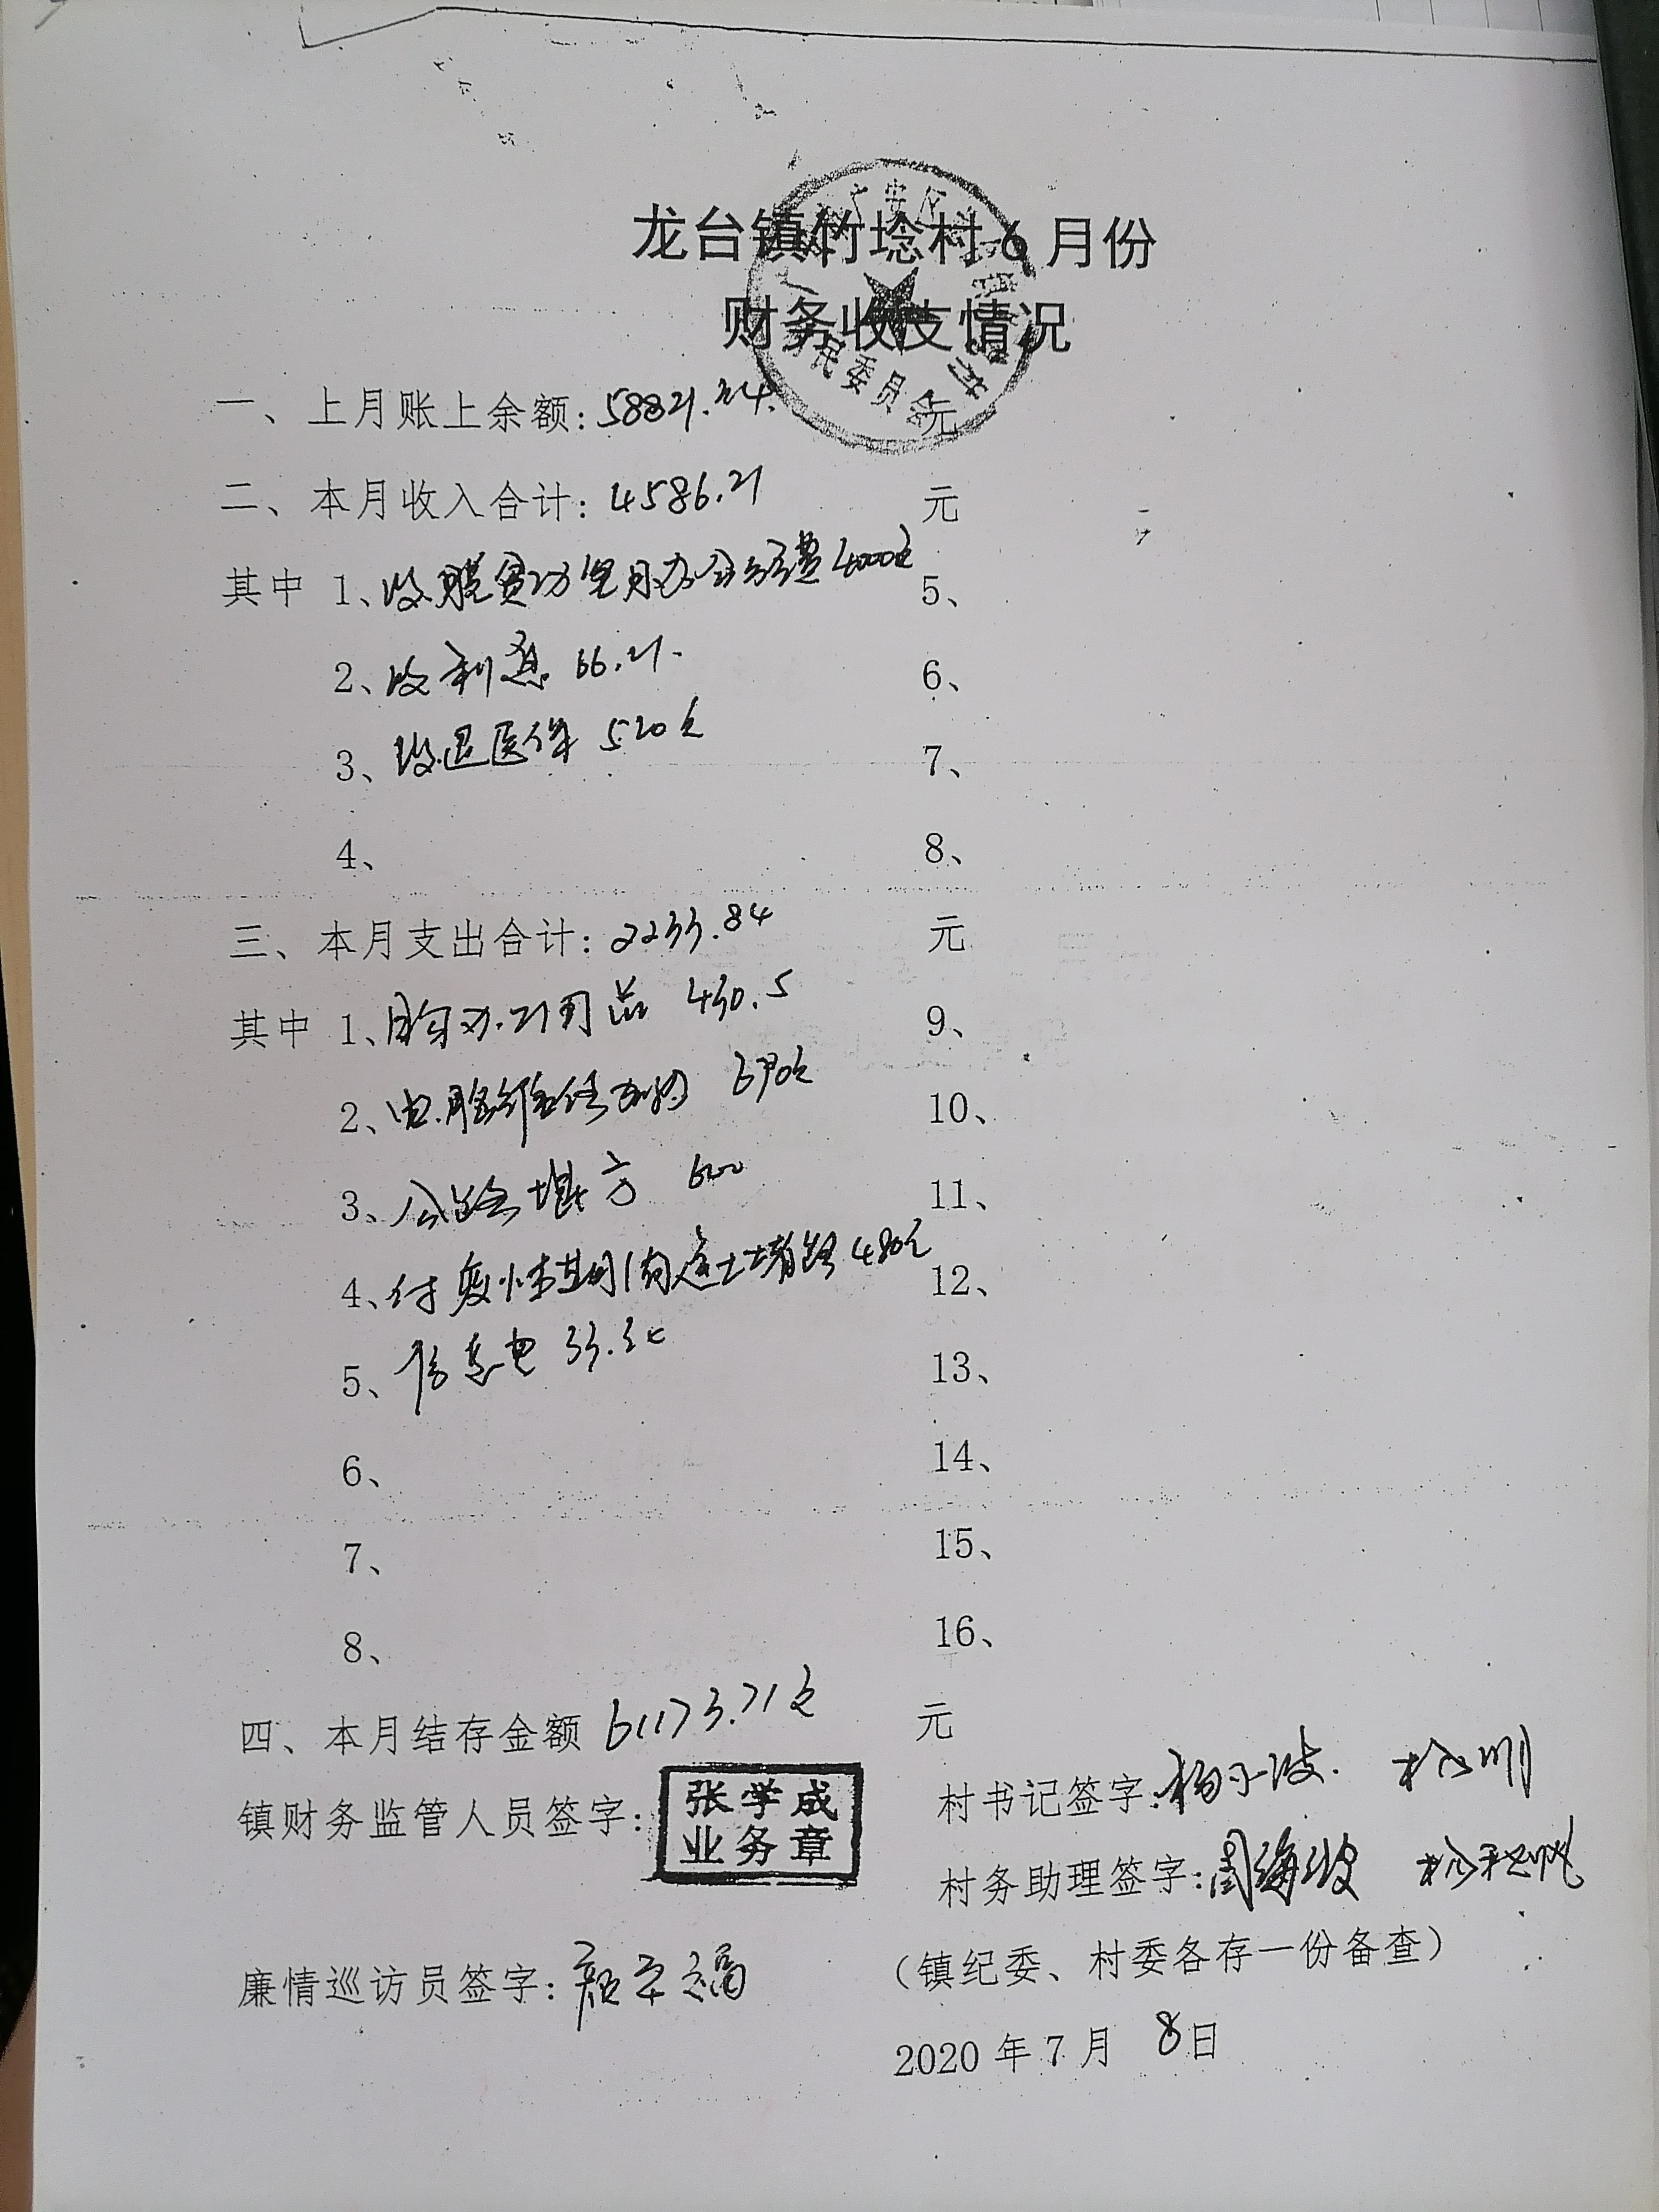 龙台镇竹埝村6月份
财务收支情况
一、上月账上余额：58821.34. 元
二、本月收入合计：4586.21 元
其中 1、收脱贫攻坚月办公经费4000元 5、
2、收利息 66.21. 6、
3、收退医保 520元 7、
4、 8、
三、本月支出合计：2233.84 元
其中 1、购办公用品 430.5 9、
2、电脑维修 690元 10、
3、公路 方 600 11、
4、付疫情期间运土堵路480元 12、
5、信息电 33.34 13、
6、 14、
7、 15、
8、 16、
四、本月结存金额 61173.71元 元
镇财务监管人员签字：张学成 业务章 村书记签字：
村务助理签字：周海波
廉情巡访员签字： （镇纪委、村委各存一份备查）
2020年7月 8日